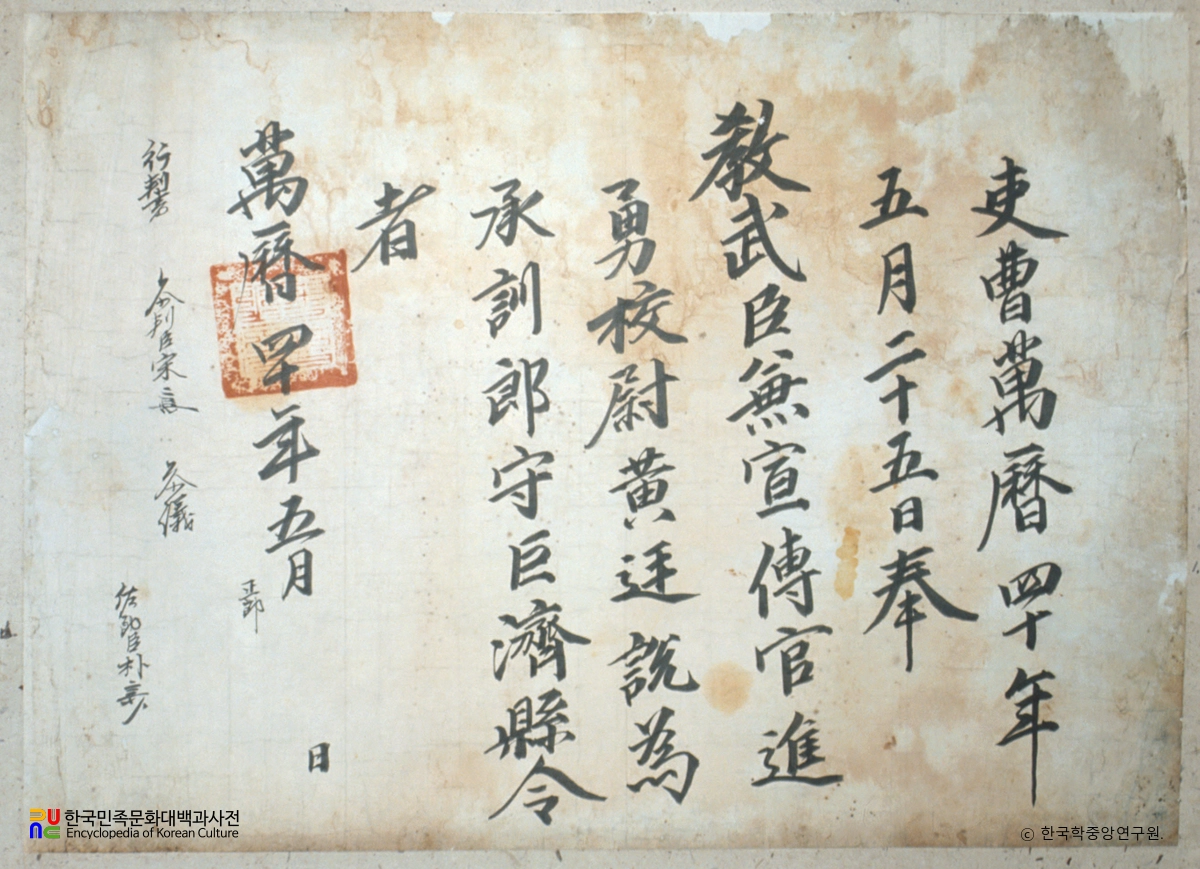 吏曹萬曆四十年
五月二十五日奉
敎武臣兼宣傳官進
勇校尉黃廷說為
承訓郎守巨濟縣令
者
萬曆四十年五月 日
正郎
行判書 參判臣宋 參議
佐郎臣朴
한국민족문화대백과사전
Encyclopedia of Korean Culture
ⓒ 한국학중앙연구원.